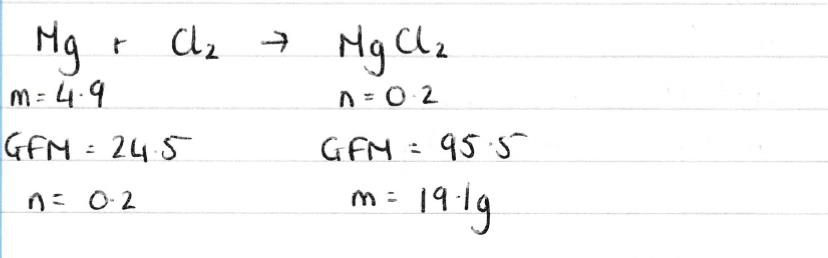 Mg + Cl₂ → MgCl₂
m = 4.9 n = 0.2
GFM = 24.5 GFM = 95.5
n = 0.2 m = 19.1g